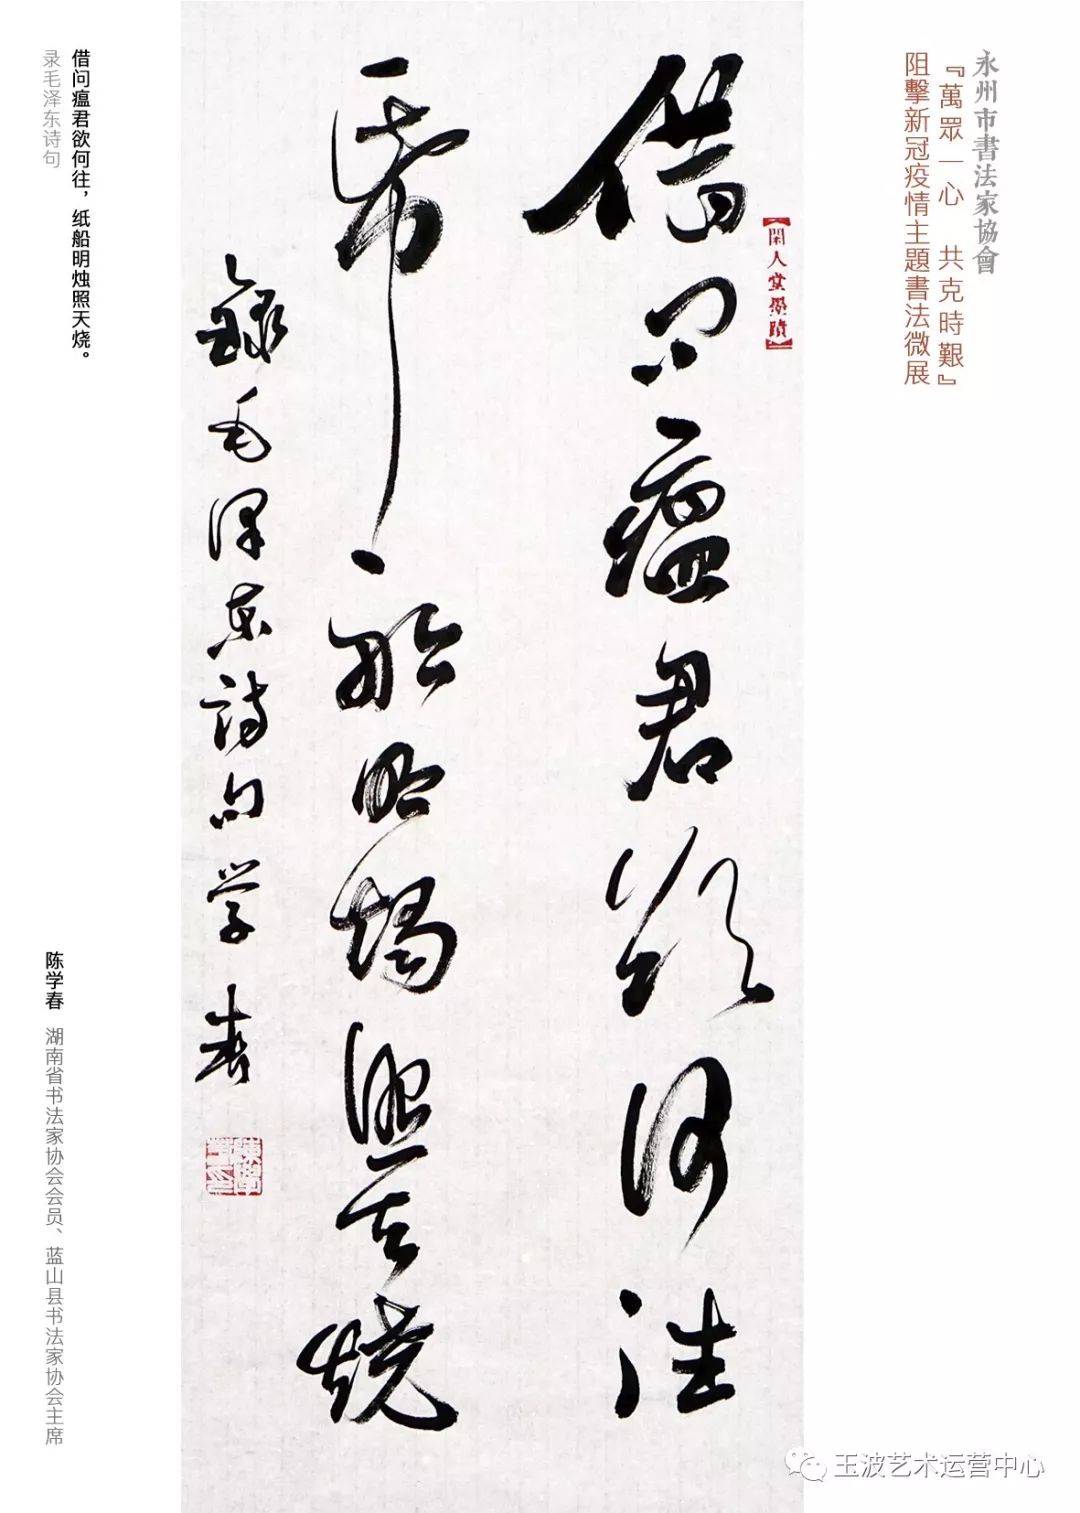 永州市書法家協會
『萬眾一心 共克時艱』
阻擊新冠疫情主題書法微展
【閑人堂墨蹟】
借问瘟君欲何往
纸船明烛照天烧
録毛泽东诗句学春
借问瘟君欲何往，纸船明烛照天烧。
录毛泽东诗句
陈学春 湖南省书法家协会会员、蓝山县书法家协会主席
玉波艺术运营中心